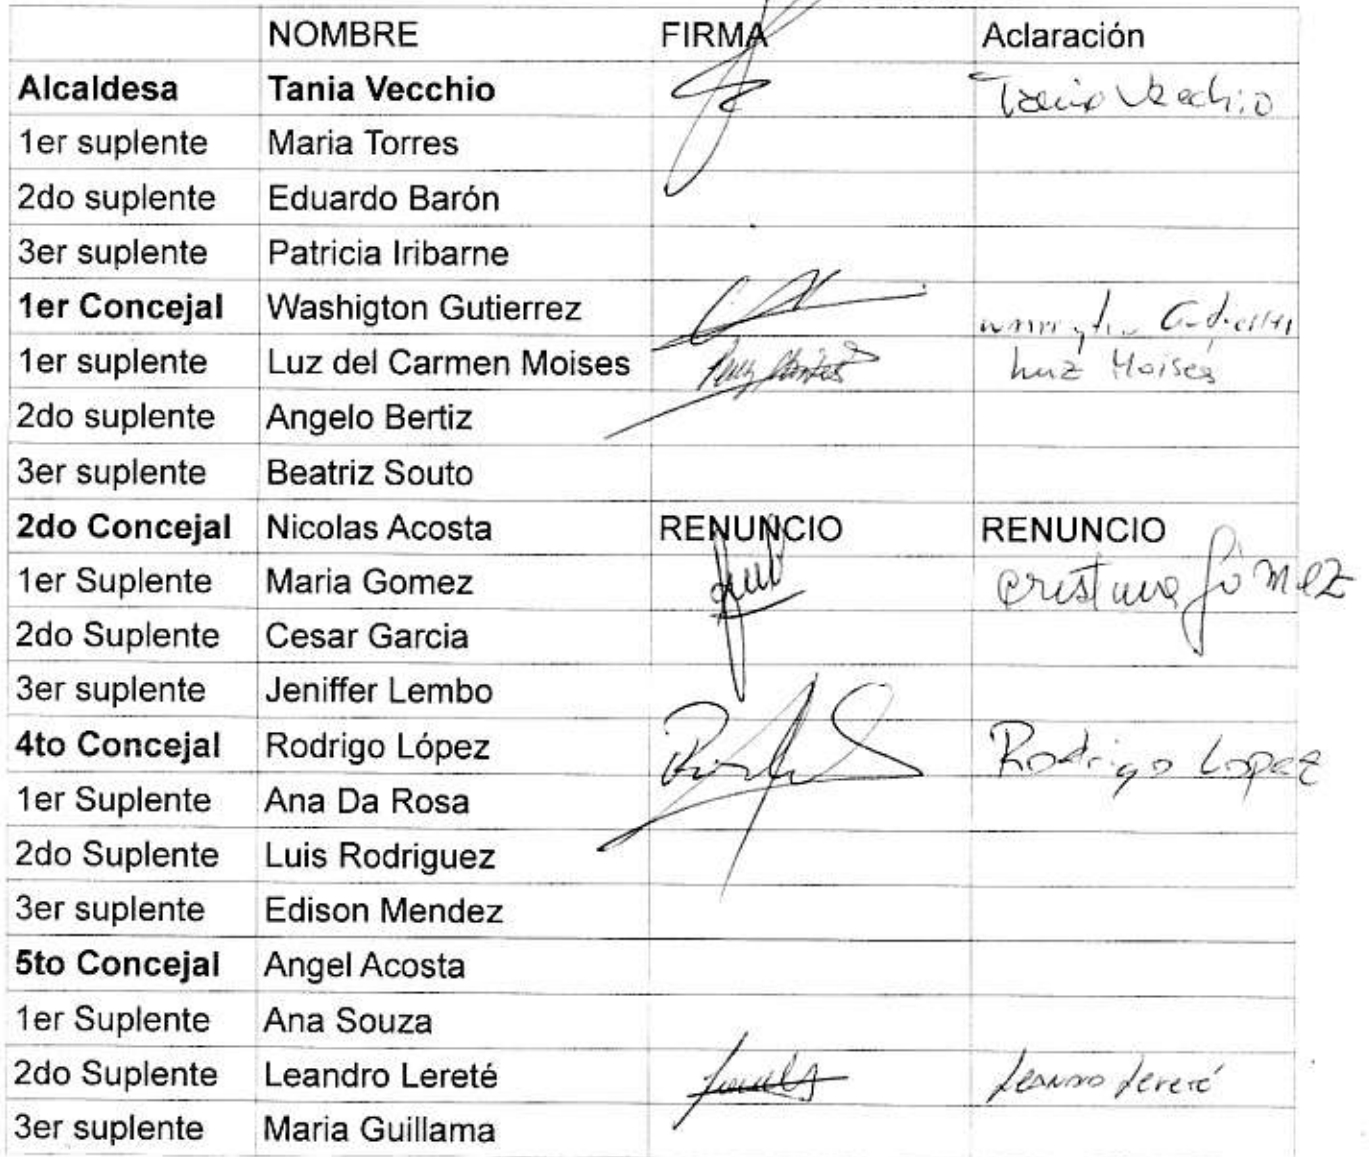 NOMBRE FIRMA Aclaración
Alcaldesa Tania Vecchio Tania Vecchio
1er suplente Maria Torres
2do suplente Eduardo Barón
3er suplente Patricia Iribarne
1er Concejal Washigton Gutierrez
1er suplente Luz del Carmen Moises Luz Moisés
2do suplente Angelo Bertiz
3er suplente Beatriz Souto
2do Concejal Nicolas Acosta RENUNCIO RENUNCIO
1er Suplente Maria Gomez Cristina Gómez
2do Suplente Cesar Garcia
3er suplente Jeniffer Lembo
4to Concejal Rodrigo López Rodrigo Lopez
1er Suplente Ana Da Rosa
2do Suplente Luis Rodriguez
3er suplente Edison Mendez
5to Concejal Angel Acosta
1er Suplente Ana Souza
2do Suplente Leandro Lereté Leandro Lereté
3er suplente Maria Guillama